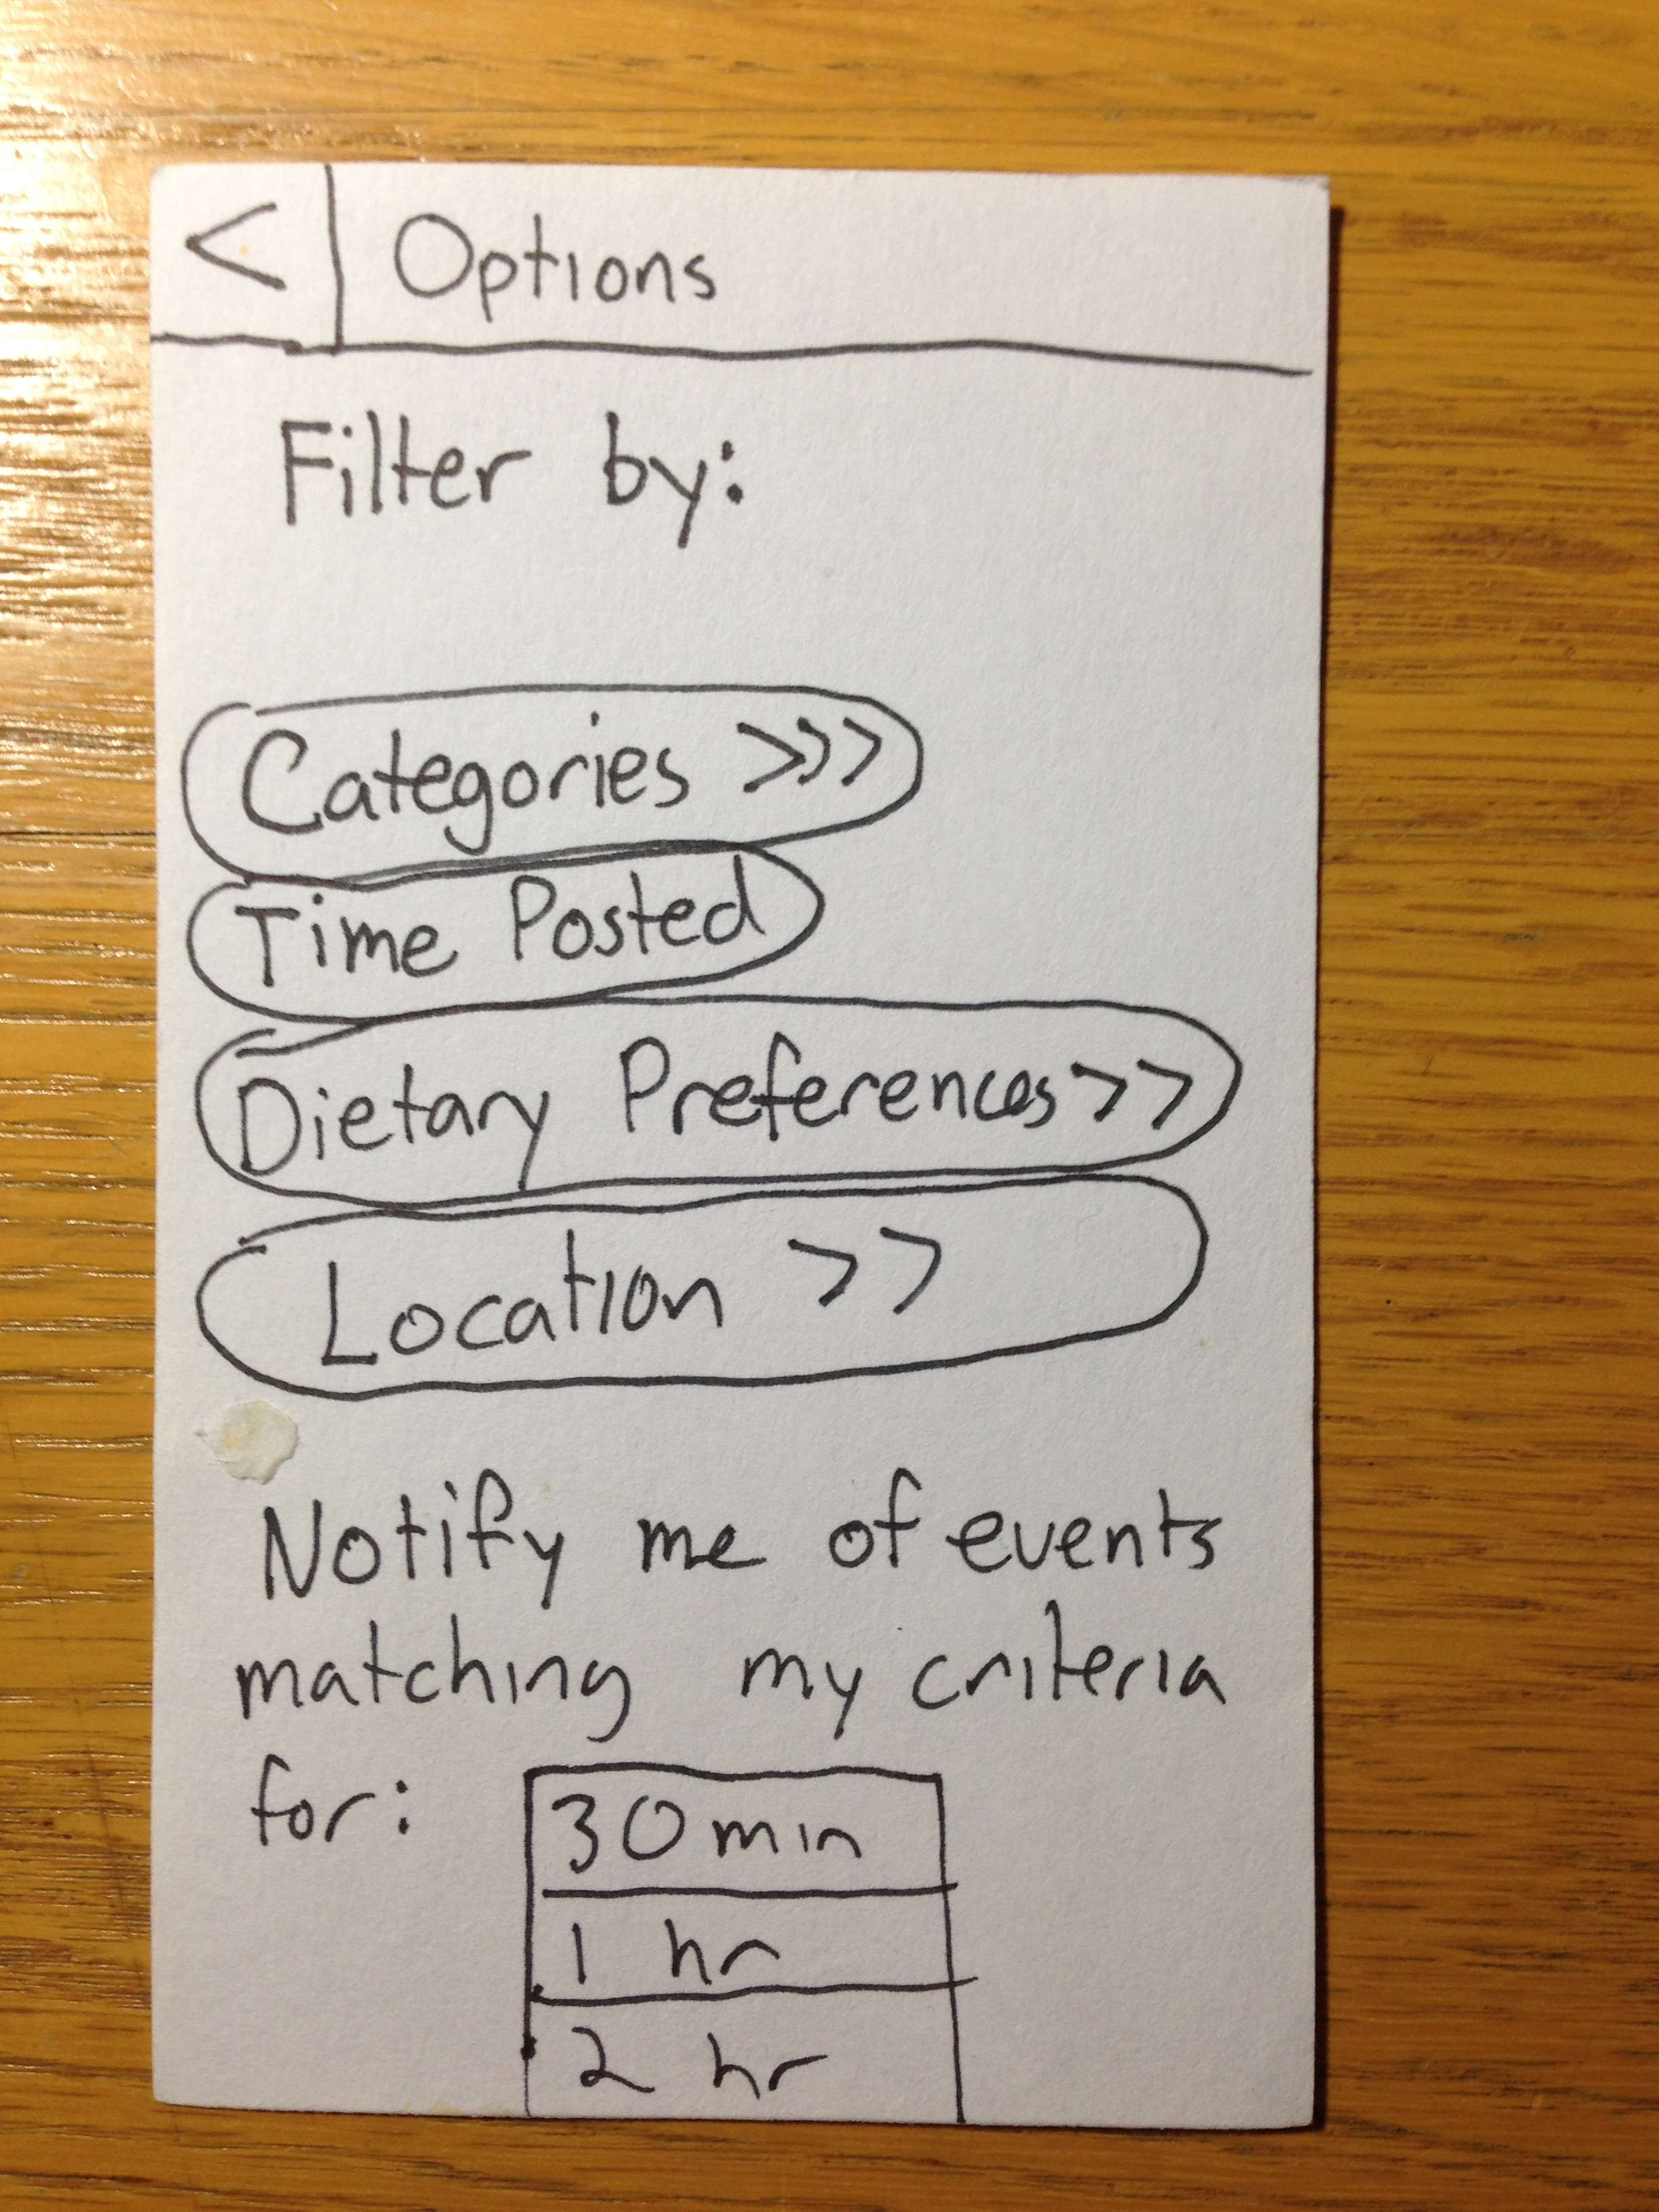 < Options
Filter by:
Categories >>>
Time Posted
Dietary Preferences >>
Location >>
Notify me of events
matching my criteria
for: 30 min
1 hr
2 hr